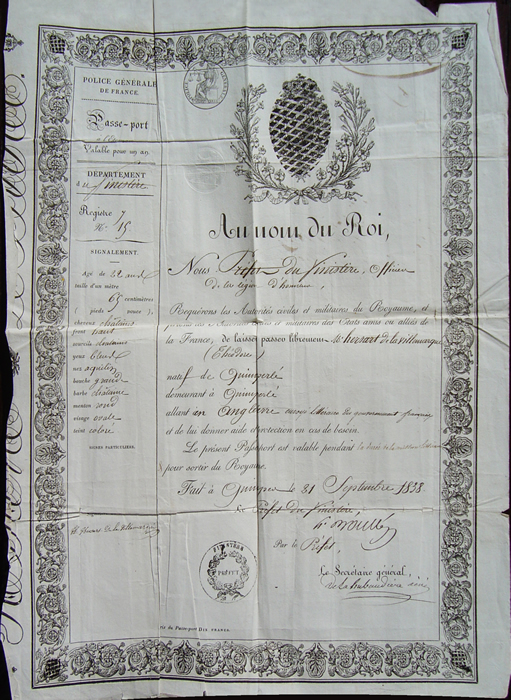 POLICE GÉNÉRALE
DE FRANCE.
Passe-port
Valable pour un an.
DÉPARTEMENT
du finistère
Registre 7
N.º 15
SIGNALEMENT.
Agé de 22 ans
taille d'un mètre
65 centimètres
( pieds pouces )
cheveux chatains
front haut
sourcils chatains
yeux bleus
nez aquilin
bouche grande
barbe chataine
menton rond
visage ovale
teint coloré
SIGNES PARTICULIERS.
Au nom du Roi,
Nous Préfet du finistère, officier
de la légion d'honneur,
Requérons les Autorités civiles et militaires du Royaume, et
civils et militaires des États amis ou alliés de
la France, de laisser passer librement M. hersart de la villemarqué
(Théodore)
natif de Quimperlé
demeurant à Quimperlé
allant en Angleterre
et de lui donner aide et protection en cas de besoin.
Le présent Passeport est valable pendant
pour sortir du Royaume.
Fait à Quimper le 21 Septembre 1838
Le Préfet du finistère,
Par le Préfet,
Le Secrétaire général,
FINISTÈRE
PRÉFET
Prix du Passe-port DIX FRANCS.